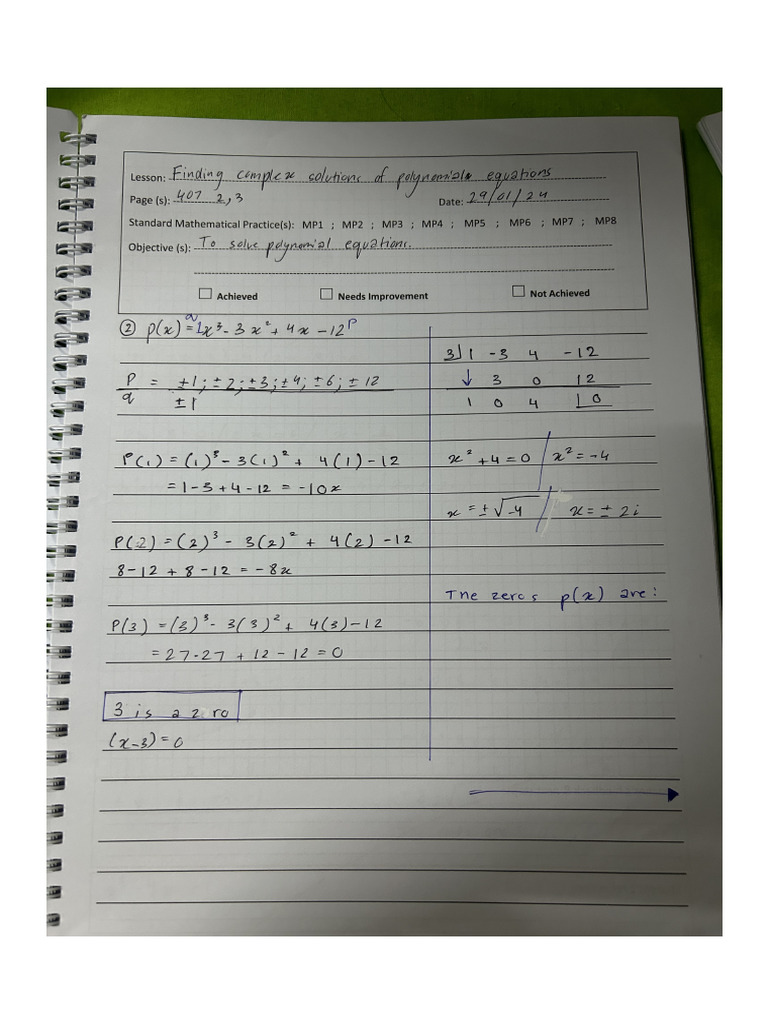 Lesson: Finding complex solutions of polynomials equations
Page (s): 407 2,3 Date: 29/01/24
Standard Mathematical Practice(s): MP1 ; MP2 ; MP3 ; MP4 ; MP5 ; MP6 ; MP7 ; MP8
Objective (s): To solve polynomial equations.
Achieved Needs Improvement Not Achieved
② p(x) = 1x³ - 3x² + 4x - 12 P
q
P/q = ±1; ±2; ±3; ±4; ±6; ±12 / ±1
P(1) = (1)³ - 3(1)² + 4(1) - 12
= 1 - 3 + 4 - 12 = -10x
P(2) = (2)³ - 3(2)² + 4(2) - 12
8 - 12 + 8 - 12 = -8x
P(3) = (3)³ - 3(3)² + 4(3) - 12
= 27 - 27 + 12 - 12 = 0
3 is a zero
(x-3) = 0
3⌋ 1 -3 4 -12
↓ 3 0 12
1 0 4 | 0
x² + 4 = 0 / x² = -4
x = ±√-4 // x = ± 2i
The zeros p(x) are: